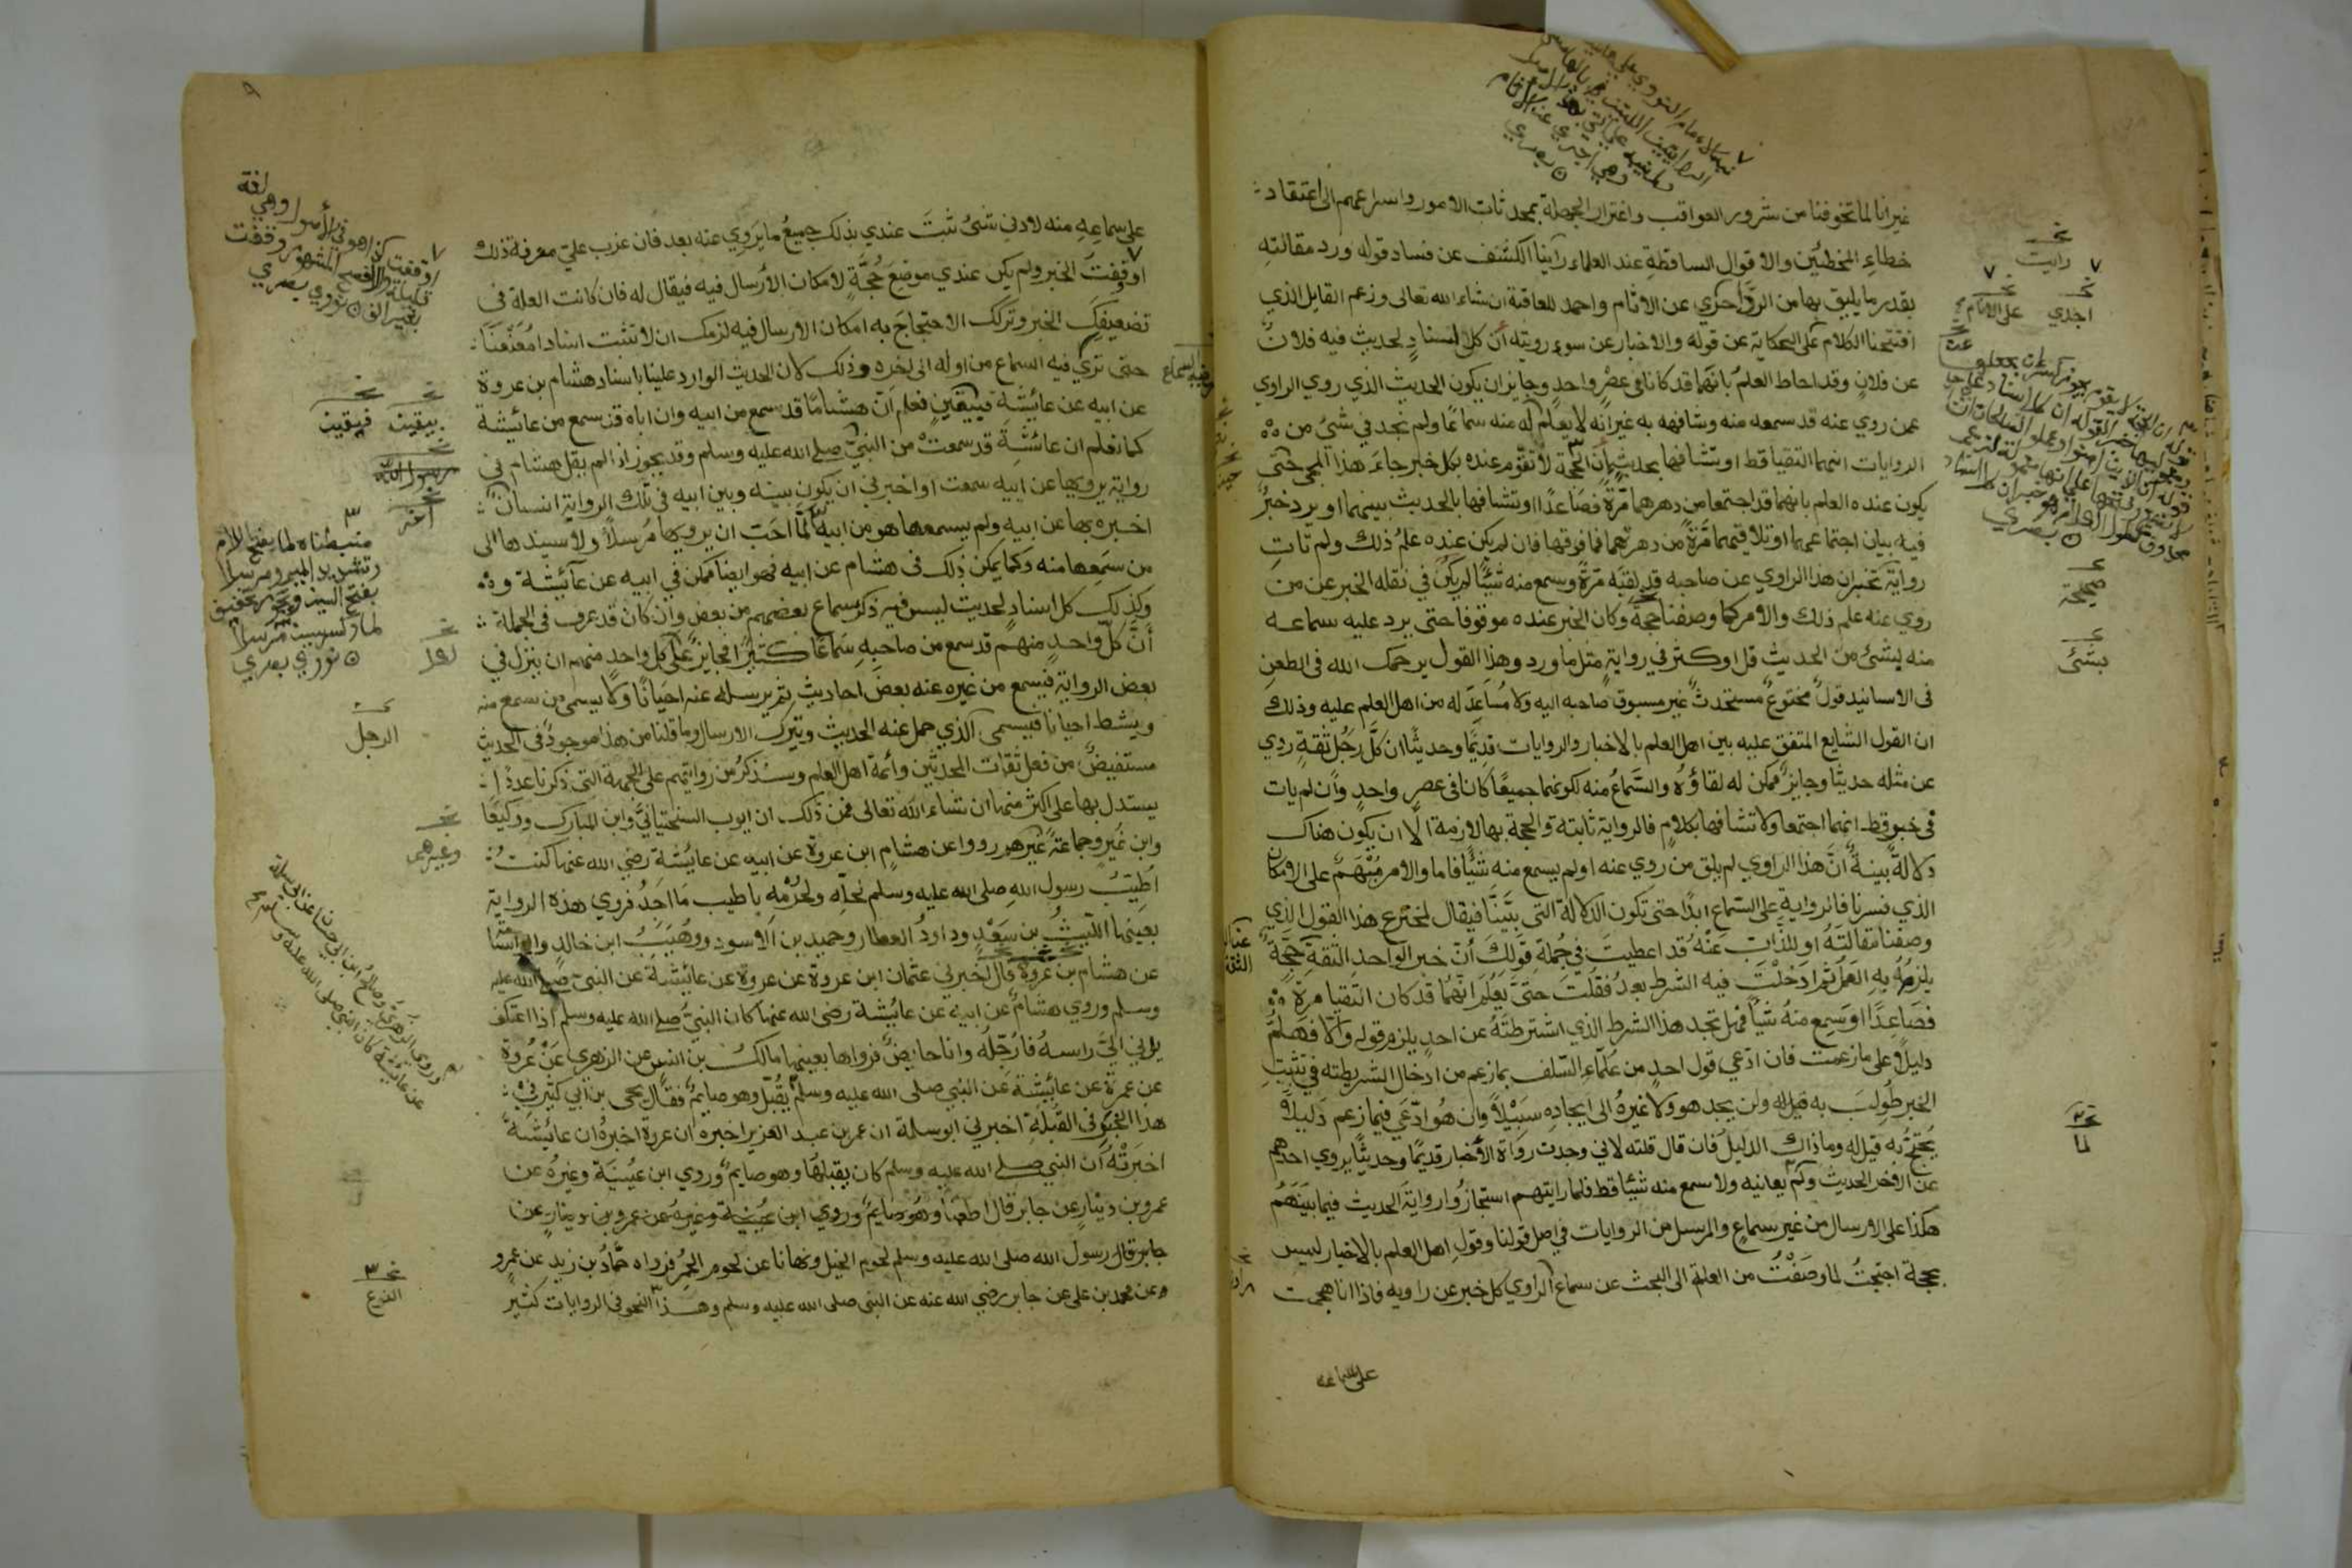 غير انا لما تخوفنا من شرور العواقب واغترار الجهلة بمحدثات الامور واسراعهم الى اعتقاد
خطاءِ المخطئين والاقوال الساقطةِ عند العلماء رأينا الكشف عن فساد قوله ورد مقالتهِ
بقدر ما يليق بها من الرَّدِّ احري عن الاثام واحمد للعاقبة ان شاء الله تعالى وزعم القايل الذي
افتتحنا الكلام على الحكاية عن قوله والاخبار عن سوءِ رويته أن كل اسنادٍ لحديث فيه فلان
عن فلانٍ وقد احاط العلمُ بانهما قد كانا في عصْرٍ واحدٍ وجايز ان يكون الحديث الذي روي الراوي
عمن روي عنه قد سمعه منه وشافهه به غير انه لا يعلم له منه سماعًا ولم نجد في شئ من
الروايات انهما التقيا قط او تشافها بحديث أن الحجة لا تقوم عنده بكل خبر جاءَ هذا المجي حتى
يكون عنده العلم بانهما قد اجتمعا من دهرهما مَرةً فصَاعدًا او تشافها بالحديث بينهما او يرد خبرٌ
فيه بيان اجتماعهما او تلاقيهما مَرَّةً من دهرهما فما فوقها فان لم يكن عنده علمُ ذلك ولم تاتِ
رواية تخبر ان هذا الراوي عن صاحبه قد لقيَه مَرةً وسمع منه شيئًا لم يكن في نقله الخبر عن من
روي عنه علم ذلك والامر كما وصفنا حجةٌ وكان الخبر عنده موقوفا حتى يرد عليه سماعه
منه لشئ من الحديث قل او كثر في روايةٍ مثل ما ورد وهذا القول يرحمك الله في الطعنِ
في الاسانيد قولٌ مخترعٌ مستحدثٌ غير مسبوق صاحبه اليه ولا مُسَاعِدَ له من اهل العلم عليه وذلك
ان القول الشايع المتفق عليه بين اهل العلم بالاخبار والروايات قديمًا وحديثًا ان كلَّ رَجُلٍ ثقةٍ روي
عن مثله حديثا وجايزٌ ممكن له لقاؤهُ والسَّماعُ منه لكونهما جميعًا كانا في عصرٍ واحدٍ وإن لم يات
في خبرٍ قط انهما اجتمعا ولا تشافها بكلامٍ فالرواية ثابتة والحجة بها لازمة الّا ان يكون هناك
دلالةٌ بينةٌ أنَّ هذا الراوي لم يلق من روي عنه او لم يسمع منه شيئًا فاما والامر مُبْهَمٌ على الامكان
الذي فسرنا فالروايةِ على السّماع ابدًا حتى تكون الدلالة التى بيَّنَّا فيقال لمخترع هذا القول الذي
وصفنا مقالَتَهُ او للذَّابِّ عَنْهُ قد اعطيتَ في جُملةِ قَولكَ أنّ خبر الواحدِ الثقةِ حجَّةٌ
يلزمُ بِهِ العَملُ ثم ادخلْتَ فيه الشرط بعدُ فقُلتَ حتَّى يعْلمَ انهُما قد كان التقيا مرةً
فصَاعِدًا او سَمِع منهُ شيئًا فهل تجد هذا الشرط الذي اشترطتَهُ عن احدٍ يلزم قوله وَالّا فَهَلُمَّ
دليلًا على ما زعمت فان ادّعي قول احدٍ من عُلَماءِ السّلف بما زعم من ادخال الشريطته في تثبيتِ
الخبر طُولِبَ به قيل له ولن يجد هو ولا غيرُهُ الى ايجادِهِ سَبيْلاً وان هُو ادّعَي فيما زعم دَليلاً
يُحتجُّ به قيل له وما ذاك الدليلُ فان قال قلته لاني وجدت رواة الأخبار قديمًا وحديثًا يروي احدهم
عن الاخر الحديثَ ولمّا يعانيه ولا سمع منه شيئا قط فلما رايتهم استجازوُا روايةَ الحديث فيما بينَهَمُ
هكذا على الارسال من غير سماعٍ والمرسل من الروايات في اصل قولنا وقول اهل العلم بالاخبار ليس
بحجة احتجتُ لما وصَفْتُ من العلة الى البحث عن سماع الراوي كل خبر عن راويه فاذا انا هجمت
على سماعه
رايت
اجدي
على الانام
صحيحة
بشئ
لما
على سماعِهِ منه لادني شئٍ ثبتَ عندي بذلك جميعُ ما يَروِي عنه بعد فان عزب عليّ معرفة ذلك
اوقفتَ الخبر ولم يكن عندي موضِعَ حُجَّةٍ لامكان الأرسال فيه فيقال له فان كانت العلة في
تضعيفك الخبر وتركك الاحتجاجَ به امكان الارسال فيه لزمك ان لا تثبت اسنادا مُعَنعَنًا
حتى تري فيه السماع من اوله الى اخره وذلك لان الحديث الوارد علينا باسناد هشام بن عروة
عن ابيه عن عايشة فيبقين نعلم انّ هشامًا قد سمع من ابيه وان اباه قد سمع من عائيشة
كما نعلم ان عائشةِ قد سمعتْ من النبيّ صلى الله عليه وسلم وقد يجوز اذا لم يقل هشام في
روايَة يرويها عن ابيه سمعت او اخبرني ان يكون بينه وبين ابيه في تلك الرواية انسانٌ
اخبره بها عن ابيهِ ولم يسمعها هو من ابيه لمَّا احَبّ ان يرويها مُرسلاً ولا سيندها الى
من سَمِعها منه وكما يمكن ذلك في هشام عن ابيه فهو ايضا ممكن في ابيه عن عآئيشة
وكذلك كل اسنادٍ لحديث ليس فيه ذكر سماع بعضهم من بعض وان كان قد عرف في الجملة
أنَّ كلَّ واحدٍ منهم قد سمع من صاحبِهِ سَمَاعًا كثيرًا فجايزٌ على كل واحدٍ منهم ان ينزل في
بعض الرواية فيسمع من غيره عنه بعضَ احاديثِ ثم يرسله عنه احيَانًا ولا يسمى من سمع منه
وينشط احيانا فيسمى الذي حمل عنه الحديث ويترك الارسال وما قلنا من هذا موجودٌ في الحديث
مستفيضٌ من فعل ثقات المحدثين وأئمة اهل العلم وسنذكرُ من روايَتهم على الجهة التى ذكرنا عددًا
يستدل بها على اكثر منها ان شاء الله تعالى فمن ذلك ان ايوب السختياني وابن المبارك ووكيعًا
وابن نميرٍ وجماعةً غَيْرهم رووا عن هشامٍ ابن عروة عن ابيه عن عايُشة رضي الله عنها كنتُ
اُطَيِّبُ رسول اللهِ صلى الله عليه وسلم لحلِّهِ ولحُرْمِهِ باطيب ما اجدُ فروي هذه الرواية
بعينها اللّيثُ بن سَعْدٍ وداودُ العطار وحميد بن الأسود ووُهَيْبُ ابن خالدٍ
عن هشام بن عروة قال اخبرني عثمان ابن عروة عن عروة عن عائيشة عن النبي صلى الله عليه
وسلم وروي هشامٌ عن ابيه عن عايُشة رضى الله عنها كان النبيُّ صلى الله عليه وسلم اذا اعتكف
يدني الىَّ راسهُ فأُرجّلُه وانا حايضٌ فرواها بعينها مالكُ بن انسٍ عن الزهري عَنْ عُروة
عن عمرة عن عائيشة عَن النبي صلى الله عليه وسلم يُقبّل وهو صايمٌ فقال يحى بن ابي كثير في
هذا الخبر في القُبلَةِ اخبرني ابو سلمة ان عمر بن عبد العزيز اخبره ان عروة اخبرهُ ان عايُشَةَ
اخبرَتْهُ أن النبي صلى الله عليه وسلم كان يقبلهَا وهو صايمٌ وروي ابن عُيينَة وغيرُهُ عن
عمرو بن دينارٍ عن جابر قال اطعَنَا وهو صايمٌ وروي ابن عيينة وغيره عن عمرو بن دينارٍ عن
جابر قال رسول الله صلى الله عليه وسلم لحوم الخيل ونهانا عن لحوم الحُمُرِ فرواه حمَّادُ بن زيد عن عمرٍو
عن محمد بن على عن جابر رضي الله عنه عن النبي صلى الله عليه وسلم وهذا النحو في الروايات كثير
بيقين
فبيقين
الرجل
وغيرهم
النوع
٩